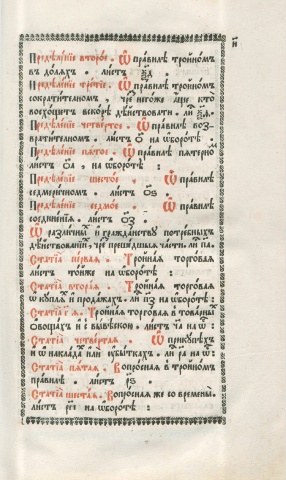 Предѣленіе второе . Ѿ правилѣ тройномъ
въ доляхъ . листъ ѯд .
Предѣленіе третіе . Ѿ правилѣ тройномъ
сократителномъ , егоже аще кто
восхощетъ вскорѣ дѣйствовати . ли
Предѣленіе четвертое . Ѿ правилѣ воз-
вратителномъ . листъ о на ѡборотѣ :
Предѣленіе пятое . Ѿ правилѣ пятерно
листъ оа , на ѡборотѣ :
Предѣленіе шестое . Ѿ правилѣ
седмеричномъ . листъ
Предѣленіе седмое . Ѿ правилѣ
соединенія . листъ
Ѿ различныхъ и гражданству потребныхъ
дѣйствованій , чрез̾ прешедшыя части . па
Статіа первая . Тройная торговая
листъ тойже на ѡборотѣ :
Статіа вторая . Тройная торговая
ѡ куплѧхъ и продажахъ . ли пз на ѡборотѣ :
Статіа г я . Тройная торговая в товарныхъ
ѡвощахъ и с вывѣскою . листъ ча на ѡ :
Статіа четвертая . Ѿ прикупѣхъ
и ѡ накладахъ или ѹбыткахъ . ли ра на ѡ :
Статіа пятая . Вопросная в тройномъ
правилѣ . листъ рз .
Статіа шестая . Вопросная же со временемъ
листъ на ѡборотѣ :